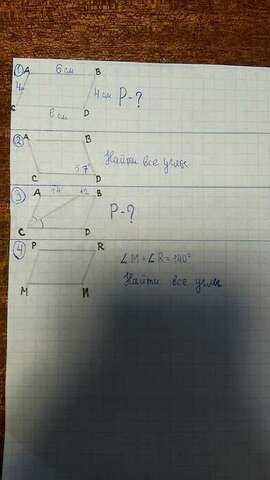 ① A 6 см B
4 см P-?
C D
② A B
Найти все углы
C 37 D
③ A 14 12 B
P-?
C D
④ P R
∠M+∠R=140°
Найти все углы
M N